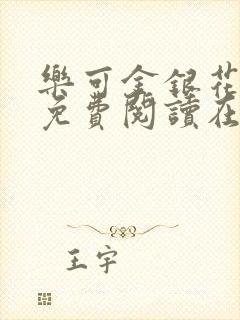 樂可金銀花
免費閱讀在
王宇